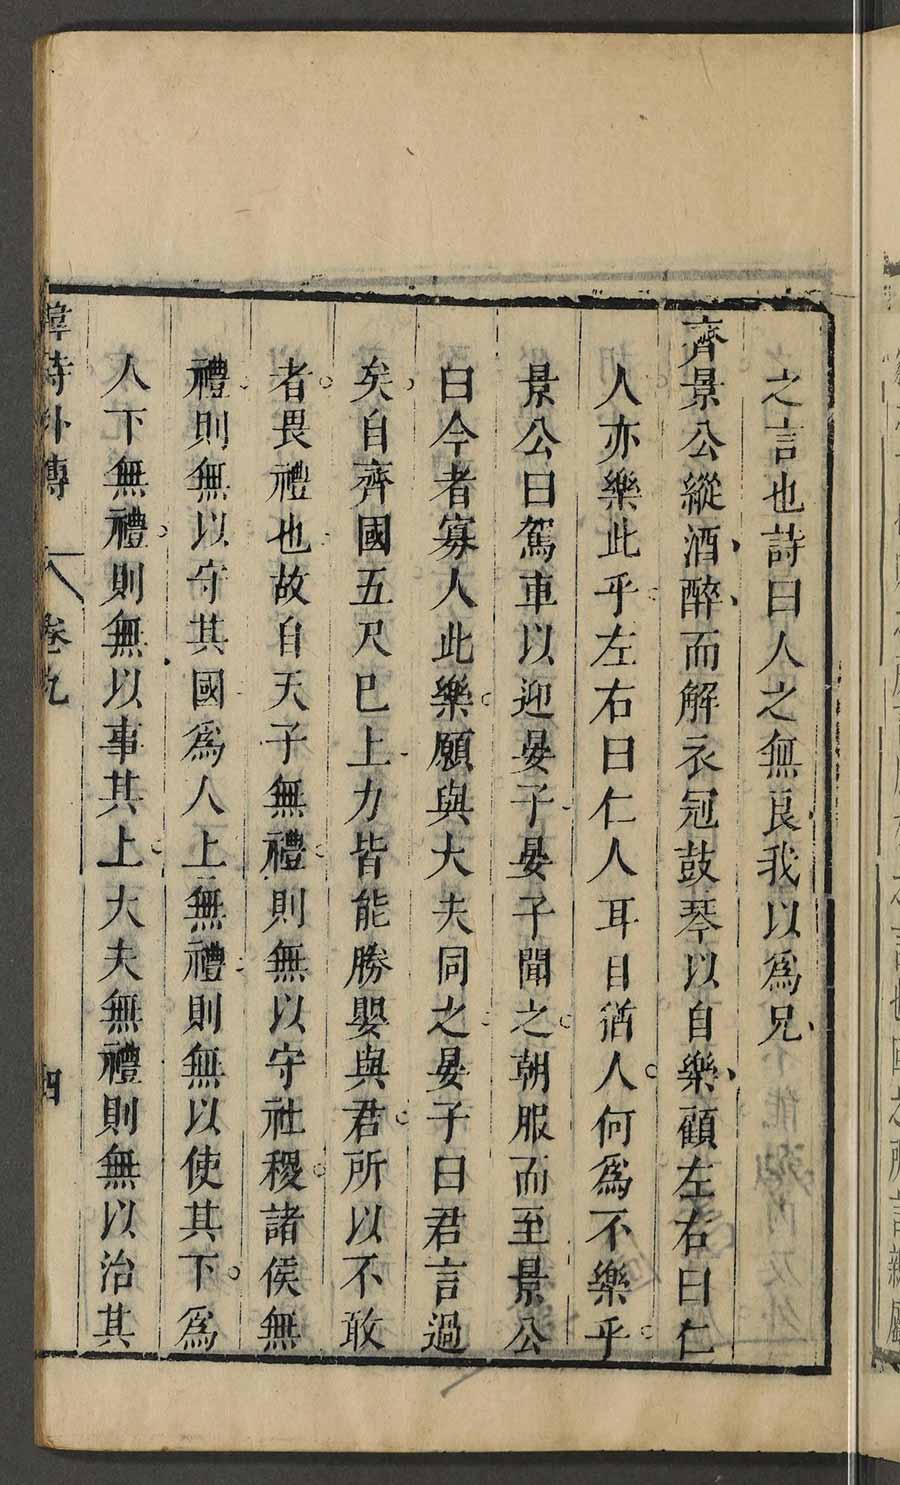 之言也詩曰人之無良我以爲兄
齊景公縱酒醉而解衣冠鼓琴以自樂顧左右曰仁
人亦樂此乎左右曰仁人耳目猶人何爲不樂乎
景公曰駕車以迎晏子晏子聞之朝服而至景公
曰今者寡人此樂願與大夫同之晏子曰君言過
矣自齊國五尺巳上力皆能勝嬰與君所以不敢
者畏禮也故自天子無禮則無以守社稷諸侯無
禮則無以守其國爲人上無禮則無以使其下爲
人下無禮則無以事其上大夫無禮則無以治其
韓詩外傳 卷九 四